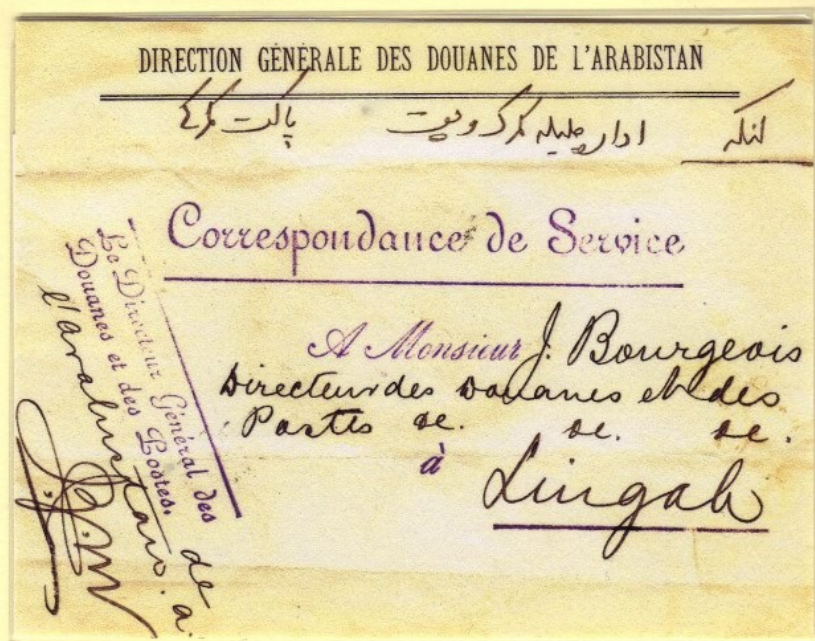 DIRECTION GÉNÉRALE DES DOUANES DE L'ARABISTAN
لنگه اداره جلیله گمرک و پست پاکت گمرک
Correspondance de Service
A Monsieur J. Bourgeois
Directeur des Douanes et des
Postes &c. &c. &c.
à
Lingah
Le Directeur Général des
Douanes et des Postes.
de
l'Arabistan. a.